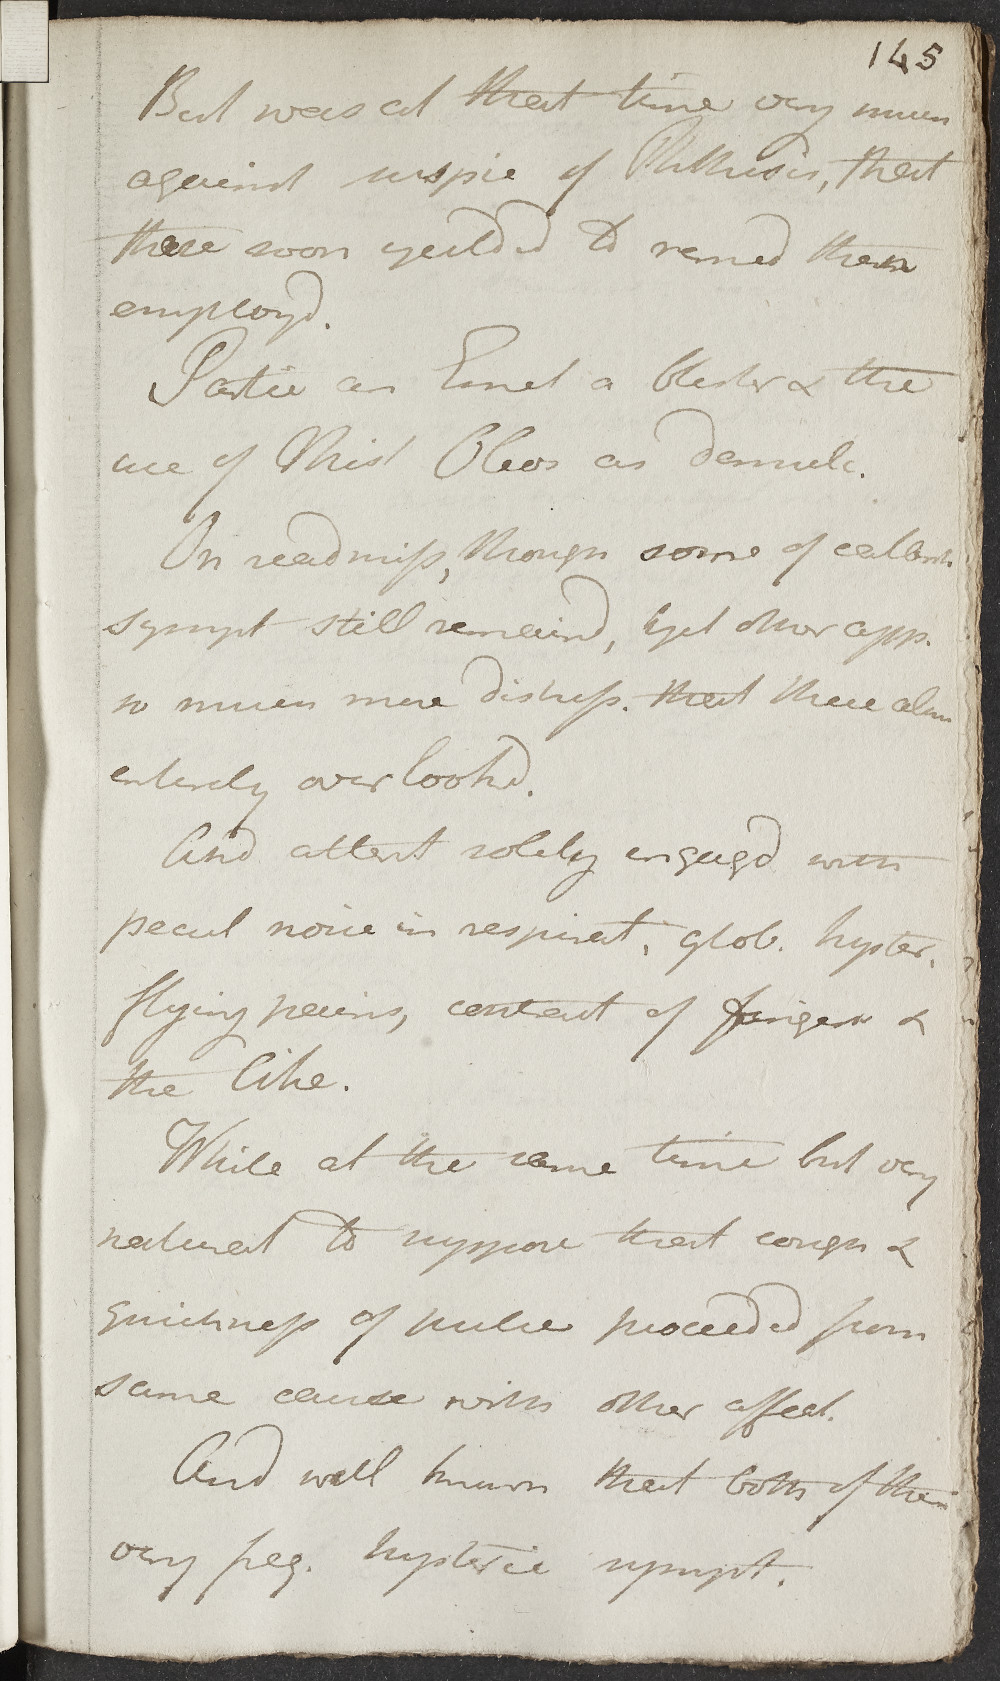 145
But was at that time very much
against suspic of Phthisis, that
these soon yeilded to remed then
employd.
Partic an Emet a blister & the
use of Mist Oleos as demulc.
On readmiss, though some of
sympt still remaind, yet other app.
so much more distress. that these alm
entirely overlookd.
And attent solely engagd with
pecul noise in respirat, glob. hyster.
flying pains, contract of fingers &
the like.
While at the same time but very
natural to suppose that cough &
quickness of pulse proceeded from
same cause with other affect.
And well known that both of them
very freq. hysteric sympt.